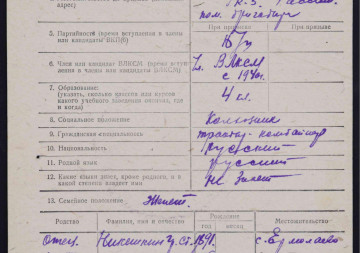 адрес)
5. Партийность (время вступления в члены или кандидаты ВКП(б)
При призыве
б/п
6. Член или кандидат ВЛКСМ (время вступления в члены или кандидаты ВЛКСМ)
Чл. ВЛКСМ
с 1940г.
7. Образование:
(указать, сколько классов или курсов какого учебного заведения окончил, где и когда)
4 кл.
8. Социальное положение
Колхозник
9. Гражданская специальность
10. Национальность
Русский
11. Родной язык
русский
12. Какие языки знает, кроме родного, и в какой степени владеет ими
не знает
13. Семейное положение
Женат.
Родство
Фамилия, имя и отчество
Рождение
год
месяц
Местожительство
Отец
1891.
с. Ермолаево